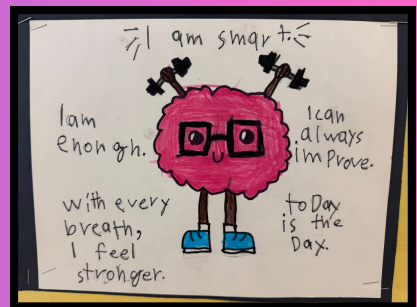 I am smart.
I am
enongh.
I can
always
improve.
with every
breath,
I feel
stronger.
toDay
is the
Day.